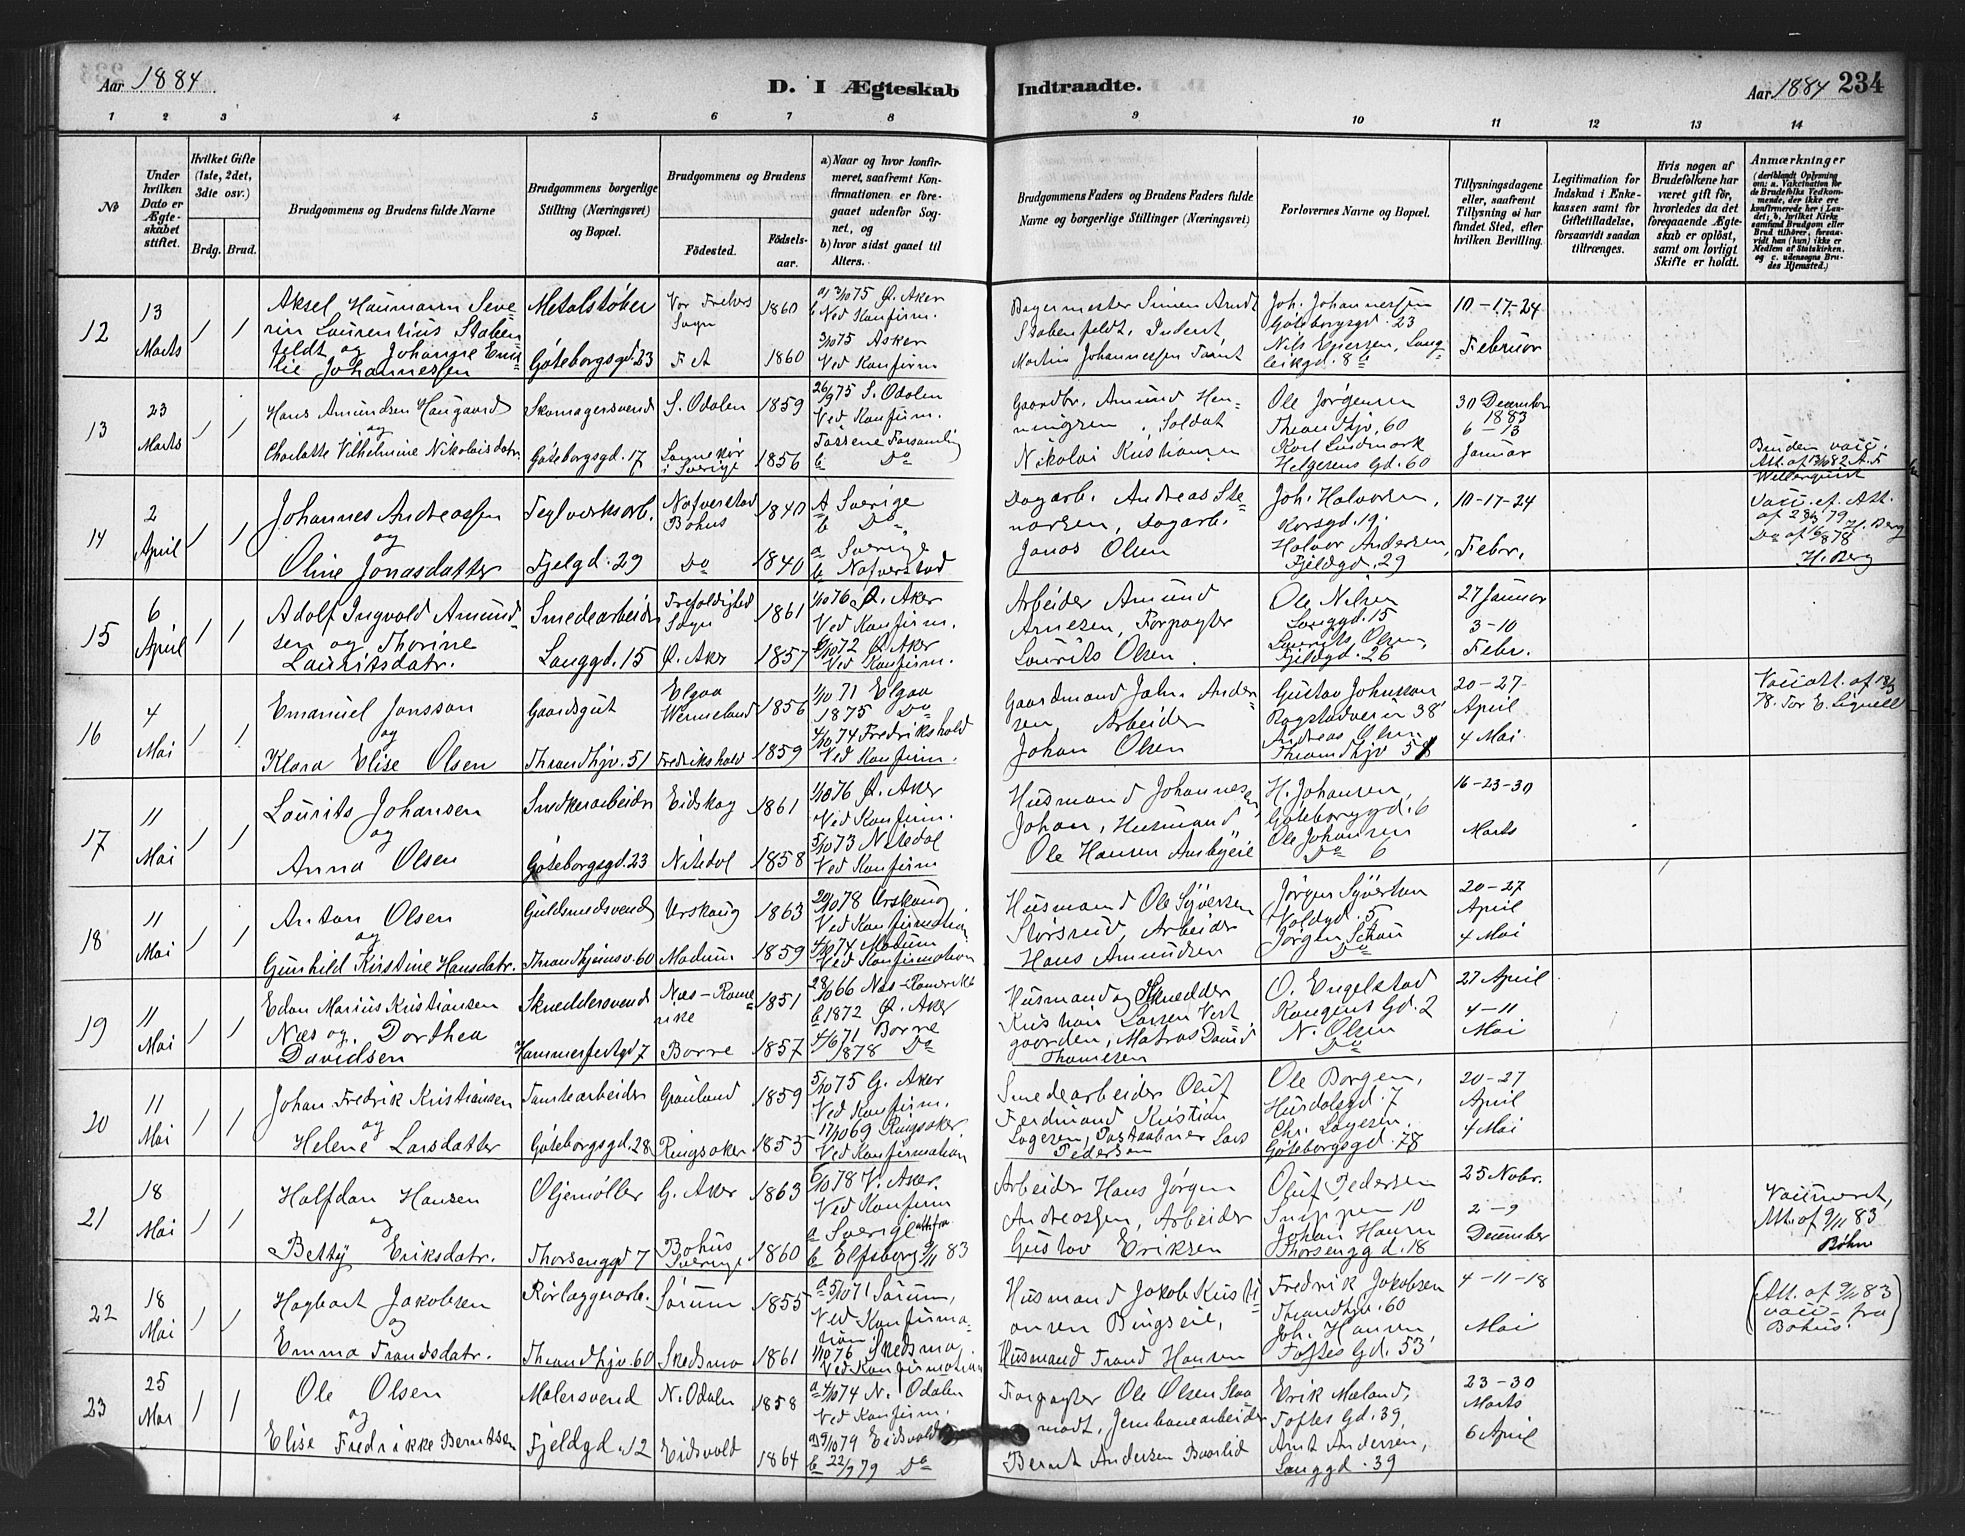 Aar 1884
D. I Ægteskab
Indtraadte.
Aar 1884 234
1 2 3 4 5 6 7 8 9 10 11 12 13 14
№
Under hvilken Dato er Ægteskabet stiftet.
Hvilket Gifte (1ste, 2det, 3die osv.)
Brdg. Brud.
Brudgommens og Brudens fulde Navne
Brudgommens borgerlige Stilling (Næringsvei) og Bopæl.
Brudgommens og Brudens
Fødested.
Fødselsaar.
a) Naar og hvor konfirmeret, saafremt Konfirmationen er foregaaet udenfor Sognet, og
b) hvor sidst gaaet til Alters.
Brudgommens Faders og Brudens Faders fulde Navne og borgerlige Stillinger (Næringsvei)
Forlovernes Navne og Bopæl.
Tillysningsdagene eller, saafremt Tillysning ei har fundet Sted, efter hvilken Bevilling.
Legitimation for Indskud i Enkekassen samt for Giftetilladelse, forsaavidt saadan tiltrænges.
Hvis nogen af Brudefolkene har været gift før, hvorledes da det foregaaende Ægteskab er opløst, samt om lovligt Skifte er holdt.
Anmærkninger (deriblandt Oplysning om: a. Vakcination for de Brudefolks Vedkommende, der ikke ere konfirmerede her i Landet; b. hvilket Kirkesamfund Brudgom eller Brud tilhører, forsaavidt han (hun) ikke er Medlem af Statskirken, og c. udensogns Brudes Hjemsted.)
12
13 Marts
1 1
Aksel Haumann Severin Laurentius Stabenfeldt og Johanne Emilie Johannessen
Metalstøber
Göteborgsgd. 23
Vor Frelsers Sogn 1860
1860
Ø. Aker
Ved Konfirm.
3/10 75 Asker
Ved Konfirm
Simen Arndt Stabenfeldt,
Martin Johannessen
Joh. Johannessen
Göteborgsgd. 23
10-17-24
Februar
13
23 Marts
1 1
Hans Amundsen Haugaard
og
Charlotte Vilhelmine Nikolaisdatr.
Skomagersvend
Göteborgsgd. 17
S. Odalen 1859
i Sverige 1856
26/9 75 S. Odalen
Ved Konfirm.
b Do
Gaardbr. Amund Henningsen, Soldat
Nikolai Kristiansen
Ole Jörgensen
Throndhjv. 60
Karl Lindmark
Helgesens Gd. 60
30 December 1883
6-13
Januar
Bruden vacc.
14
2 April
1 1
Johannes Andreassen
og
Oline Jonasdatter
Teglverksarb.
Fjelgd. 29
Nafverstad Bohus 1840
Do 1840
a Sverige
b Do
a Sverige
b Nafverstad
Dagarb. Andreas Stenarsen, Dagarb.
Jonas Olsen
Joh. Halvorsen,
Korsgd. 19.
Halvor Andersen,
Fjeldgd. 29
10-17-24
Febr.
H. Berg
15
6 April
1 1
Adolf Ingvald Amundsen og Thorine Lauritsdatr.
Smedearbeider
Langgd. 15
Trefoldighed Sogn 1861
Ø. Aker 1857
1/10 76 Ø. Aker
Ved Konfirm.
6/10 72 Ø. Aker
Ved Konfirm.
Arbeider Amund Arnesen, Forpagter
Laurits Olsen
Ole Nilsen
Langgd. 15
Laurits Olsen,
Fjeldgd. 26
27 Januar
3-10
Febr.
16
4 Mai
1 1
Emanuel Jonsson
og
Klara Elise Olsen
Gaardsgut
Throndhjv. 51
Elgaa Wermeland 1856
Fredrikshald 1859
1/10 71 Elgaa
1875 Do
4/10 74 Fredrikshald
Ved Konfirm.
Gaardmand John Andersen Arbeider
Johan Olsen
Gustav Johnsson
Andreas Olsen
20-27
April
4 Mai
17
11 Mai
1 1
Laurits Johansen
og
Anna Olsen
Snedkerarbeider
Göteborgsgd. 23
Eidskog 1861
Nitedal 1858
1/10 76 Ø. Aker
Ved Konfirm.
5/10 73 Nitedal
Ved Konfirm
Husmand Johannes Johan, Husmand
Ole Hansen
H. Johansen,
Göteborggd. 6
Ole Johansen
Do 6
16-23-30
Marts
18
11 Mai
1 1
Anton Olsen
og
Gunhild Kirstine Hansdatr.
Guldsmedsvend
Throndhjemsv. 60
Urskoug 1863
Modum 1859
20/10 78 Urskoug
Ved Konfirmation
4/10 74 Modum
Ved Konfirmation
Husmand Ole Syversen Størsrud, Arbeider
Hans Amundsen
Jørgen Syvertsen
Voldgd. 5,
Jørgen
Do
20-27
April
4 Mai
19
11 Mai
1 1
Edan Marius Kristiansen Næs og Dorthea Davidsen
Skræddersvend
Hammerfestgd 7
Næs-Romerike 1851
Borre 1857
28/10 66 Næs-Romerike
b 1872 Ø. Aker
4/6 71 Borre
1878 Do
Husmand og Skrædder
Kristian Larsen Vestgaarden, Matros David Thomesen
O. Engelstad
Kongens Gd. 2
N. Olsen
Do
27 April
4-11
Mai
20
11 Mai
1 1
Johan Fredrik Kristiansen
og
Helene Larsdatter
Tomtearbeider
Göteborgsgd. 28
Grønland 1859
Ringsaker 1855
5/10 75 G. Aker
Ved Konfirm.
17/10 69 Ringsaker
Ved Konfirmation
Smedearbeider Oluf Ferdinand Kristian Lagesen, Lars Pedersen
Ole Borgen,
Husdalsgd. 7
Chr. Lagesen,
Göteborgsgd. 28
20-27
April
4 Mai
21
18 Mai
1 1
Halfdan Hansen
og
Betty Eriksdatr.
Oljemøller
Thorsenggd 7
G. Aker 1863
Bohus Sverige 1860
6/10 78 V. Aker.
Ved Konfirm
a Sverige att. fra
b Elfsborg 9/11 83
Arbeider Hans Jörgen Andreassen, Arbeider
Gustav Eriksen
Oluf Pedersen
Snippen 10
Johan Hansen
Thorsenggd. 18
25 Novbr.
2-9
December
Vaccineret,
Att. af 9/11 83
Bøhn
22
18 Mai
1 1
Hagbart Jakobsen
og
Emma Trandsdatr.
Rørlæggerarb.
Throndhjv. 60
Sørum 1855
Skedsmo 1861
a 5/10 71 Sørum,
Ved Konfirmation.
1/10 76 Skedsmo,
Ved Konfirmation
Husmand Jakob Kristiansen Bingseie,
Husmand Trand Hansen
Fredrik Jakobsen
Throndhjv. 60
Joh. Hansen
Toftes Gd. 53,
4-11-18
Mai
(Att. af 9/11 83
vacc. fra
Bohus)
23
25 Mai
1 1
Ole Olsen
og
Elise Fredrikke Berntsen
Malersvend
Fjeldgd. 12
N. Odalen 1858
Eidsvold 1864
a 4/10 74 N. Odalen
Ved Konfirm.
a 9/10 79 Eidsvold
b 22/9 79 Do
Forpagter Ole Olsen
Jernbanearbeider
Bernt Andersen
Erik Mæland,
Toftes Gd. 39,
Arnt Andersen,
Langgd. 39
23-30
Marts
6 April